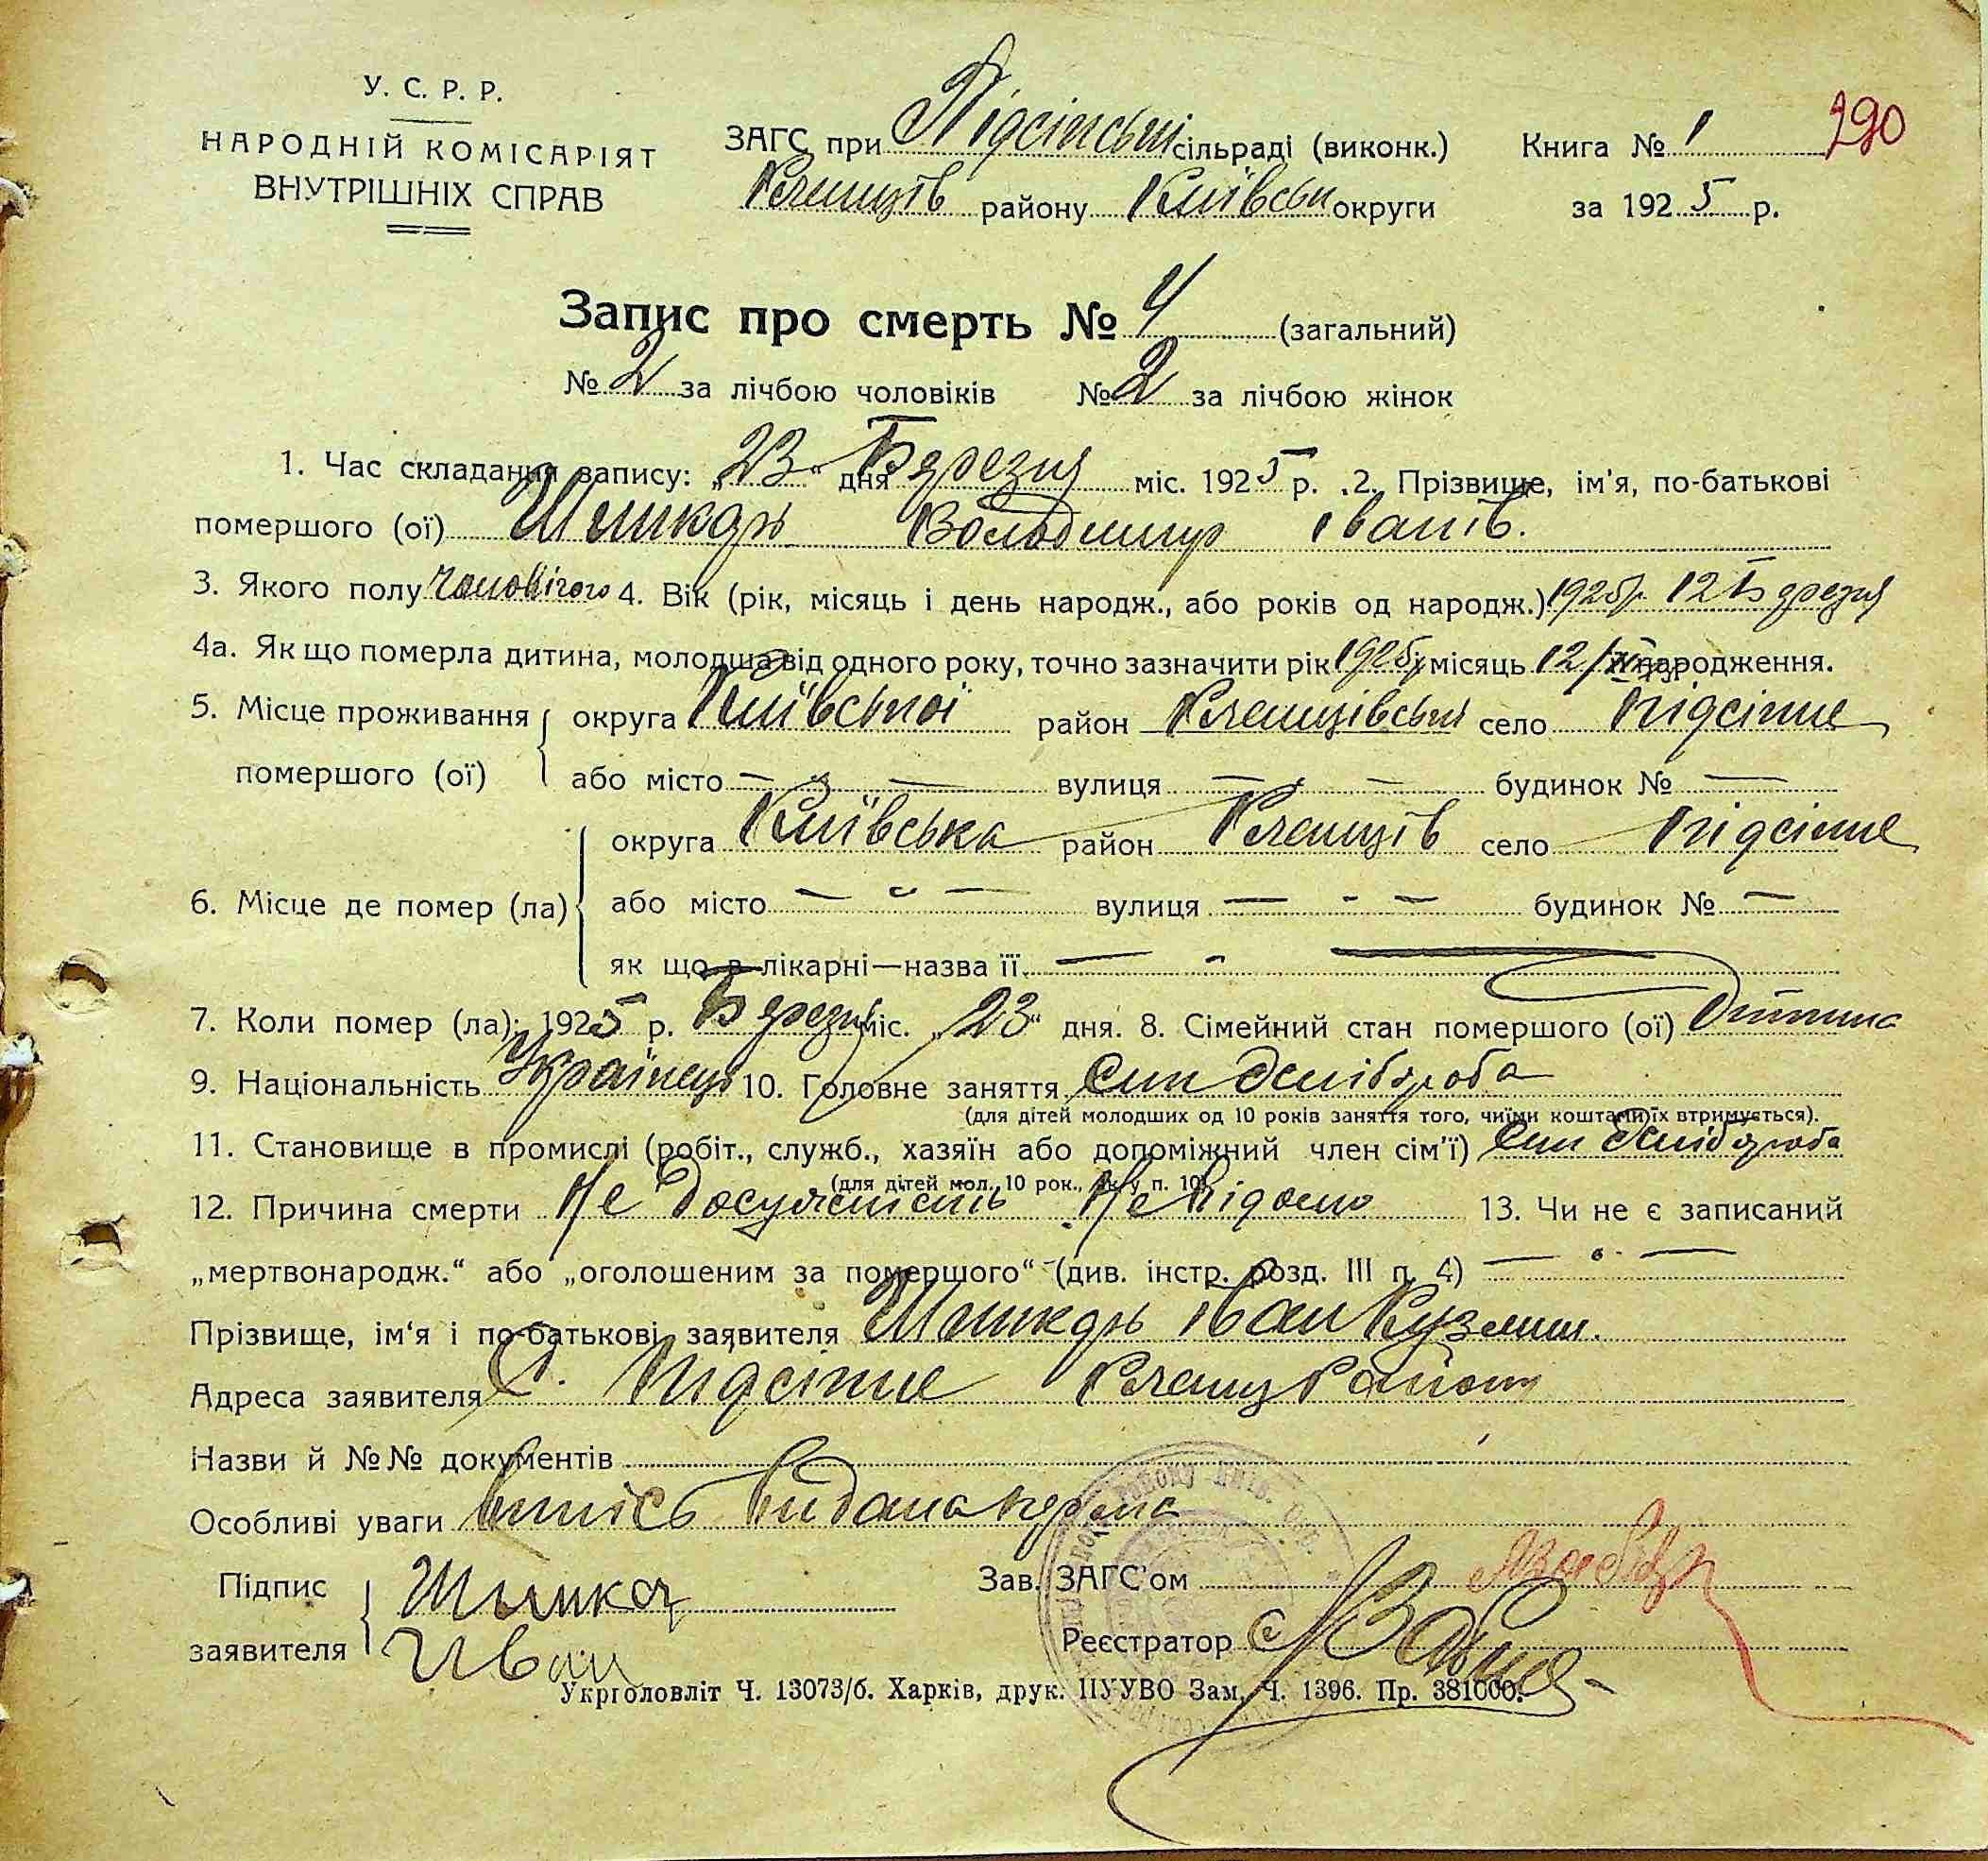 У. С. Р. Р.
НАРОДНІЙ КОМІСАРІЯТ
ВНУТРІШНІХ СПРАВ
ЗАГС при Підсінські сільраді (виконк.)
району Київськ округи
Книга № 1
290
за 1925 р.
Запис про смерть № 4 (загальний)
№ 2 за лічбою чоловіків № 2 за лічбою жінок
1. Час складання запису: „23“ дня Березня міс. 1925 р. 2. Прізвище, ім'я, по-батькові
помершого (ої) Володимир Іванів.
3. Якого полу чоловічого 4. Вік (рік, місяць і день народж., або років од народж.) 1925р. 12 Березня
4а. Як що померла дитина, молодша від одного року, точно зазначити рік 1925р і місяць 12/III народження.
5. Місце проживання округа Київської район село Підсінне
помершого (ої) або місто — — вулиця — — будинок № —
округа Київська район село Підсінне
6. Місце де помер (ла) або місто — " — вулиця — - — будинок № —
як що в лікарні—назва її — - —
7. Коли помер (ла): 1925 р. Березня міс. „23“ дня. 8. Сімейний стан помершого (ої) Дитина
9. Національність Українець 10. Головне заняття Син хлібороба
(для дітей молодших од 10 років заняття того, чиїми коштами їх втримується).
11. Становище в промислі (робіт., служб., хазяїн або допоміжний член сім'ї) Син хлібороба
(для дітей мол. 10 рок., як у п. 10)
12. Причина смерти Невідомо 13. Чи не є записаний
„мертвонародж.“ або „оголошеним за помершого“ (див. інстр. розд. III п. 4) — " —
Прізвище, ім'я і по-батькові заявителя Іван Кузмин.
Адреса заявителя С. Підсінне Района
Назви й №№ документів
Особливі уваги випісь видана
Підпис Зав. ЗАГС'ом
заявителя Иван Реєстратор
Укрголовліт Ч. 13073/б. Харків, друк. ПУУВО Зам. Ч. 1396. Пр. 381000.